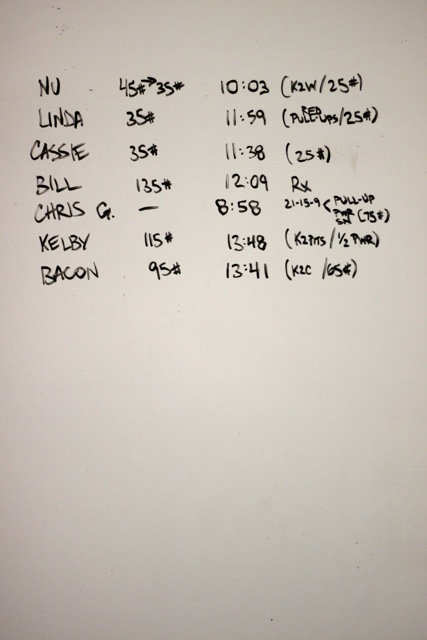 NU 45#→35# 10:03 (K2W/25#)
LINDA 35# 11:59 (RED PULL-UPS/25#)
CASSIE 35# 11:38 (25#)
BILL 135# 12:09 Rx
CHRIS G. — 8:58 21-15-9 < PULL-UP PWR SN (75#)
KELBY 115# 13:48 (K2PITS / 1/2 PWR)
BACON 95# 13:41 (K2C /65#)